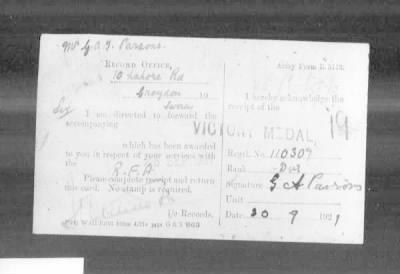 Mr G.A.J. Parsons.
RECORD OFFICE,
10 Lahore Rd
Croydon 19
Surrey
Sir
I am directed to forward the
accompanying
which has been awarded
to you in respect of your services with
the R.F.A
Please complete receipt and return
this card. No stamp is required.
I/c Records.
Army Form B. 5112.
I hereby acknowledge the
receipt of the
VICTORY MEDAL 19
Regtl. No. 110309
Rank Dvr
Signature G A Parsons
Unit
Date 30 9 1921